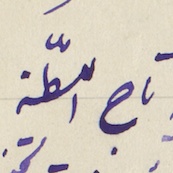 تاج السلطنة